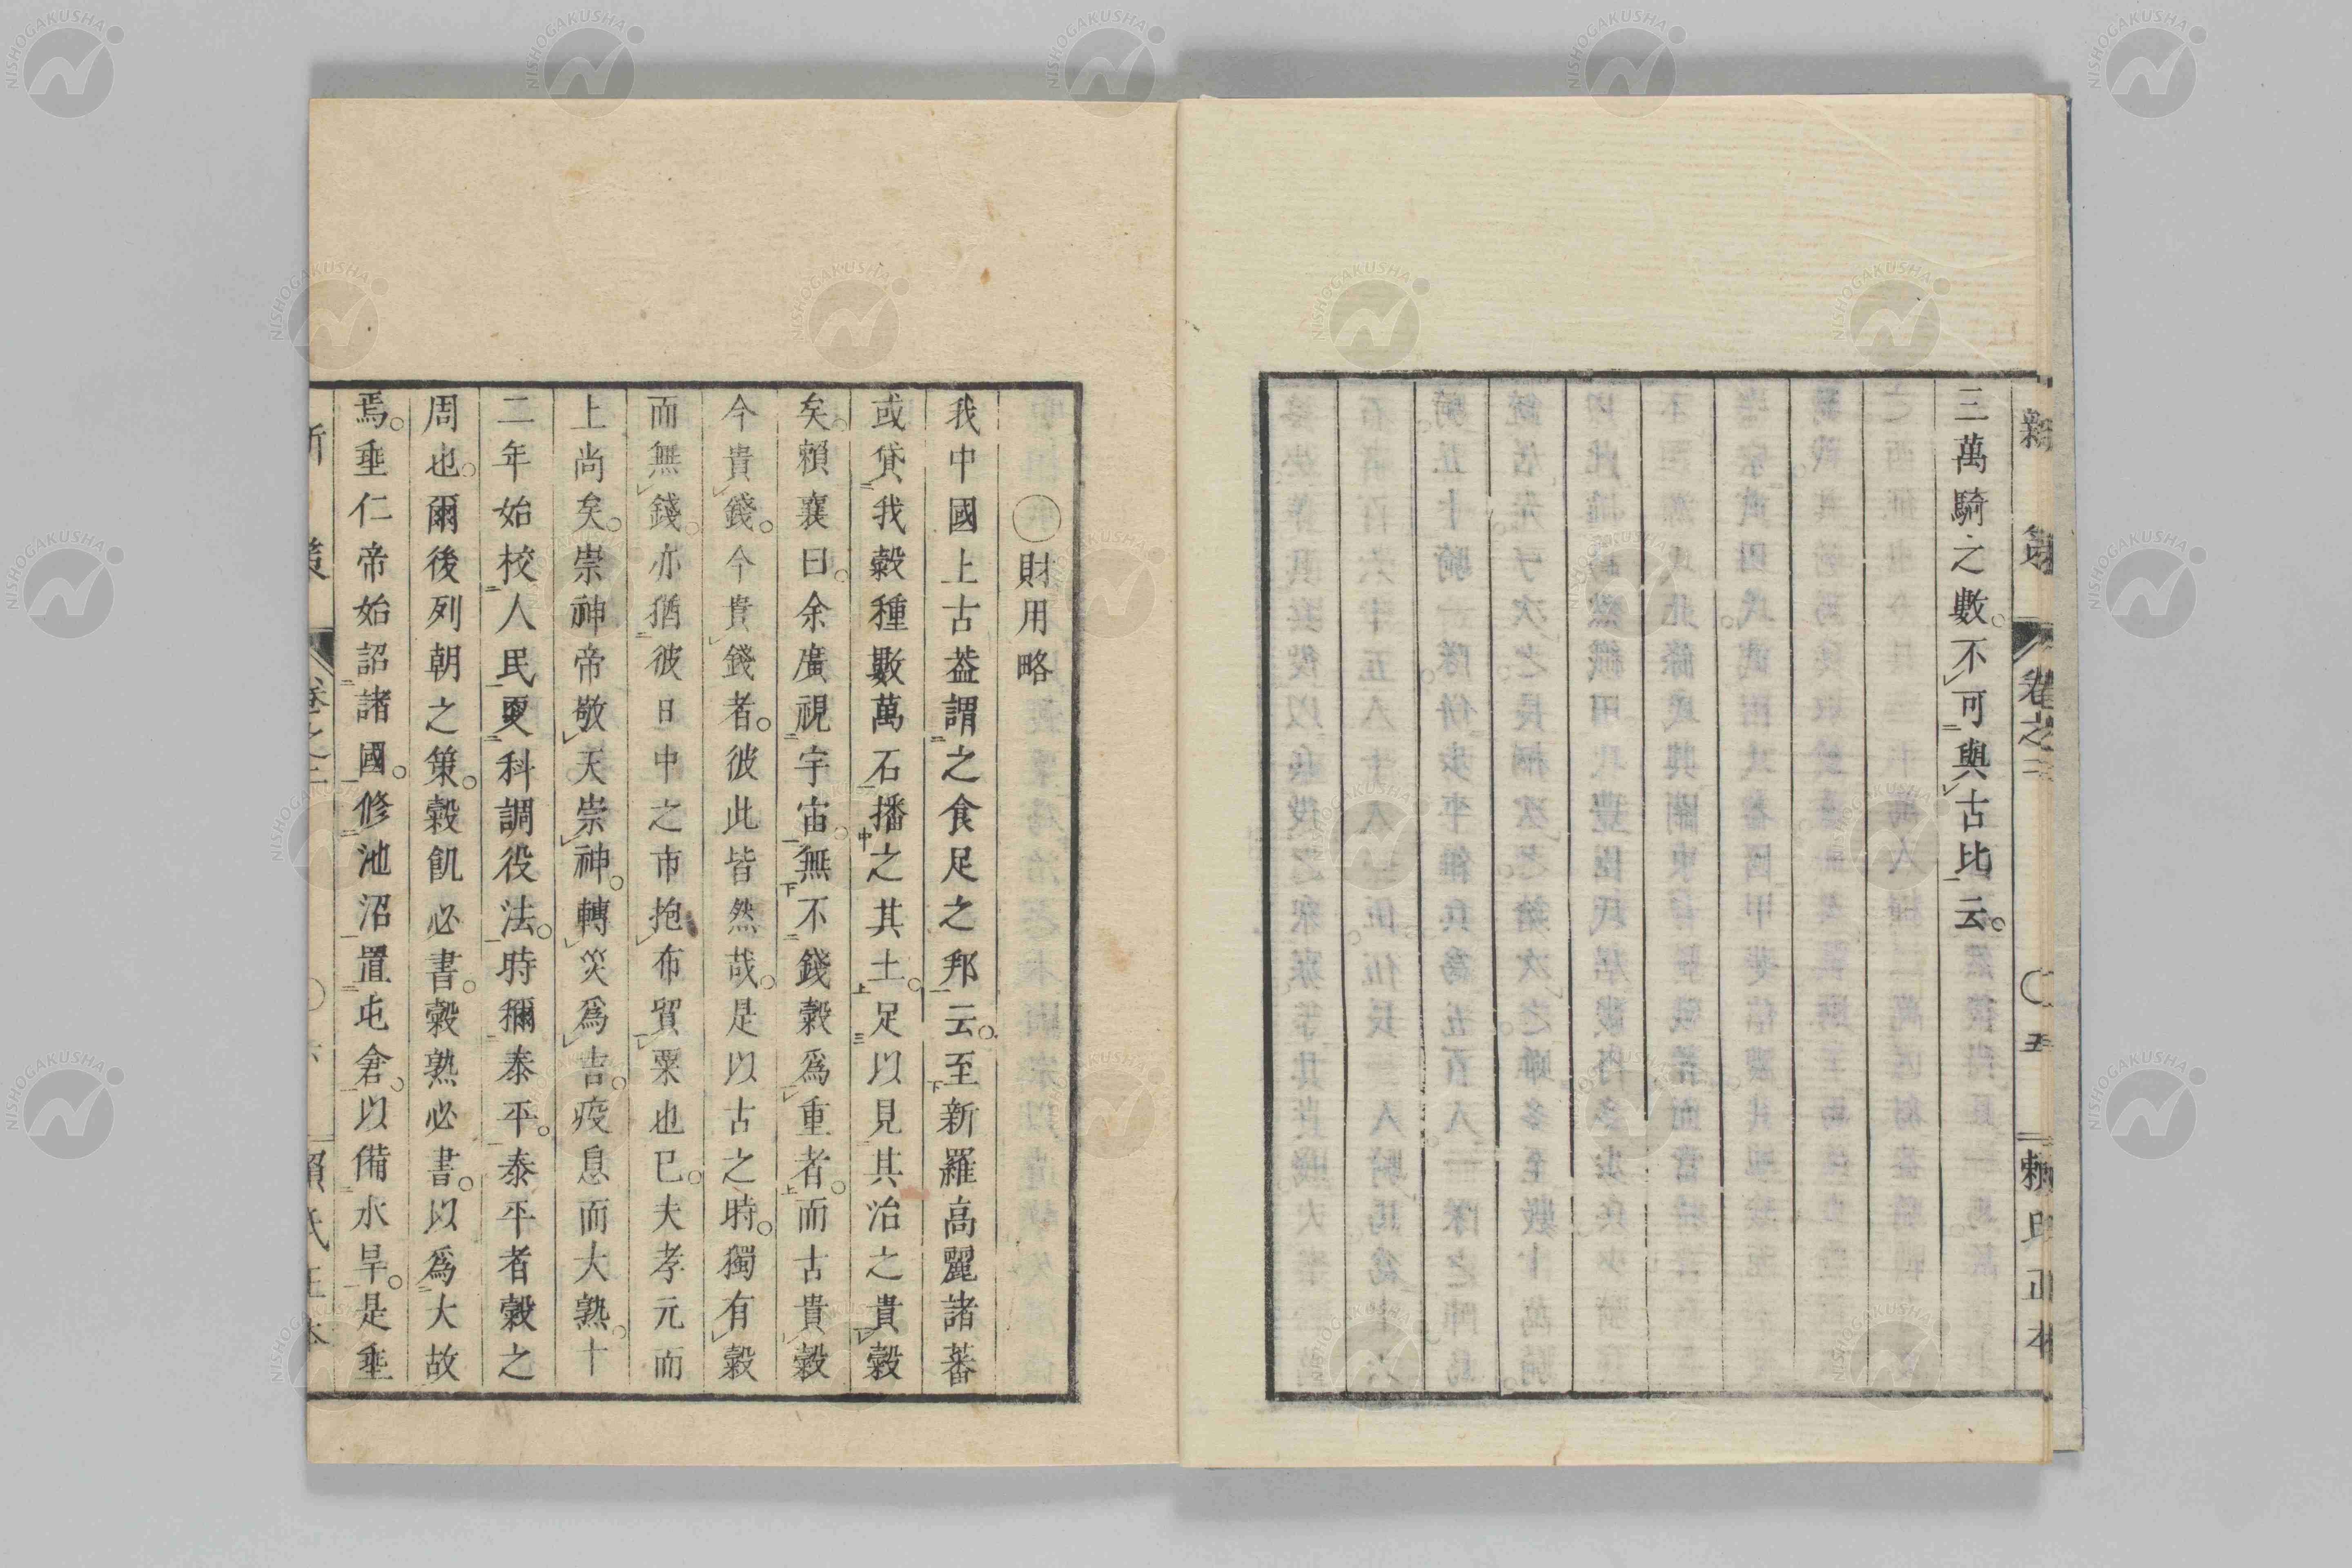 新策 卷之三 〇五 賴氏正本
三萬騎之數。不可與古比云。
〇財用略
我中國上古葢謂之食足之邦云。至新羅高麗諸蕃
或貸我穀種數萬石播之其土。足以見其治之貴穀
矣。賴襄曰。余廣視宇宙。無不錢穀爲重者。而古貴穀
今貴錢。今貴錢者。彼此皆然哉。是以古之時。獨有穀
而無錢。亦猶彼日中之市抱布貿粟也已。夫孝元而
上尚矣。崇神帝敬天崇神。轉災爲吉。疫息而大熟。十
二年始校人民更科調役法。時稱泰平。泰平者穀之
周也。爾後列朝之策。穀飢必書。穀熟必書。以爲大故
焉。垂仁帝始詔諸國。修池沼置屯倉。以備水旱。是垂
新策 卷之三 賴氏正本
NISHOGAKUSHA